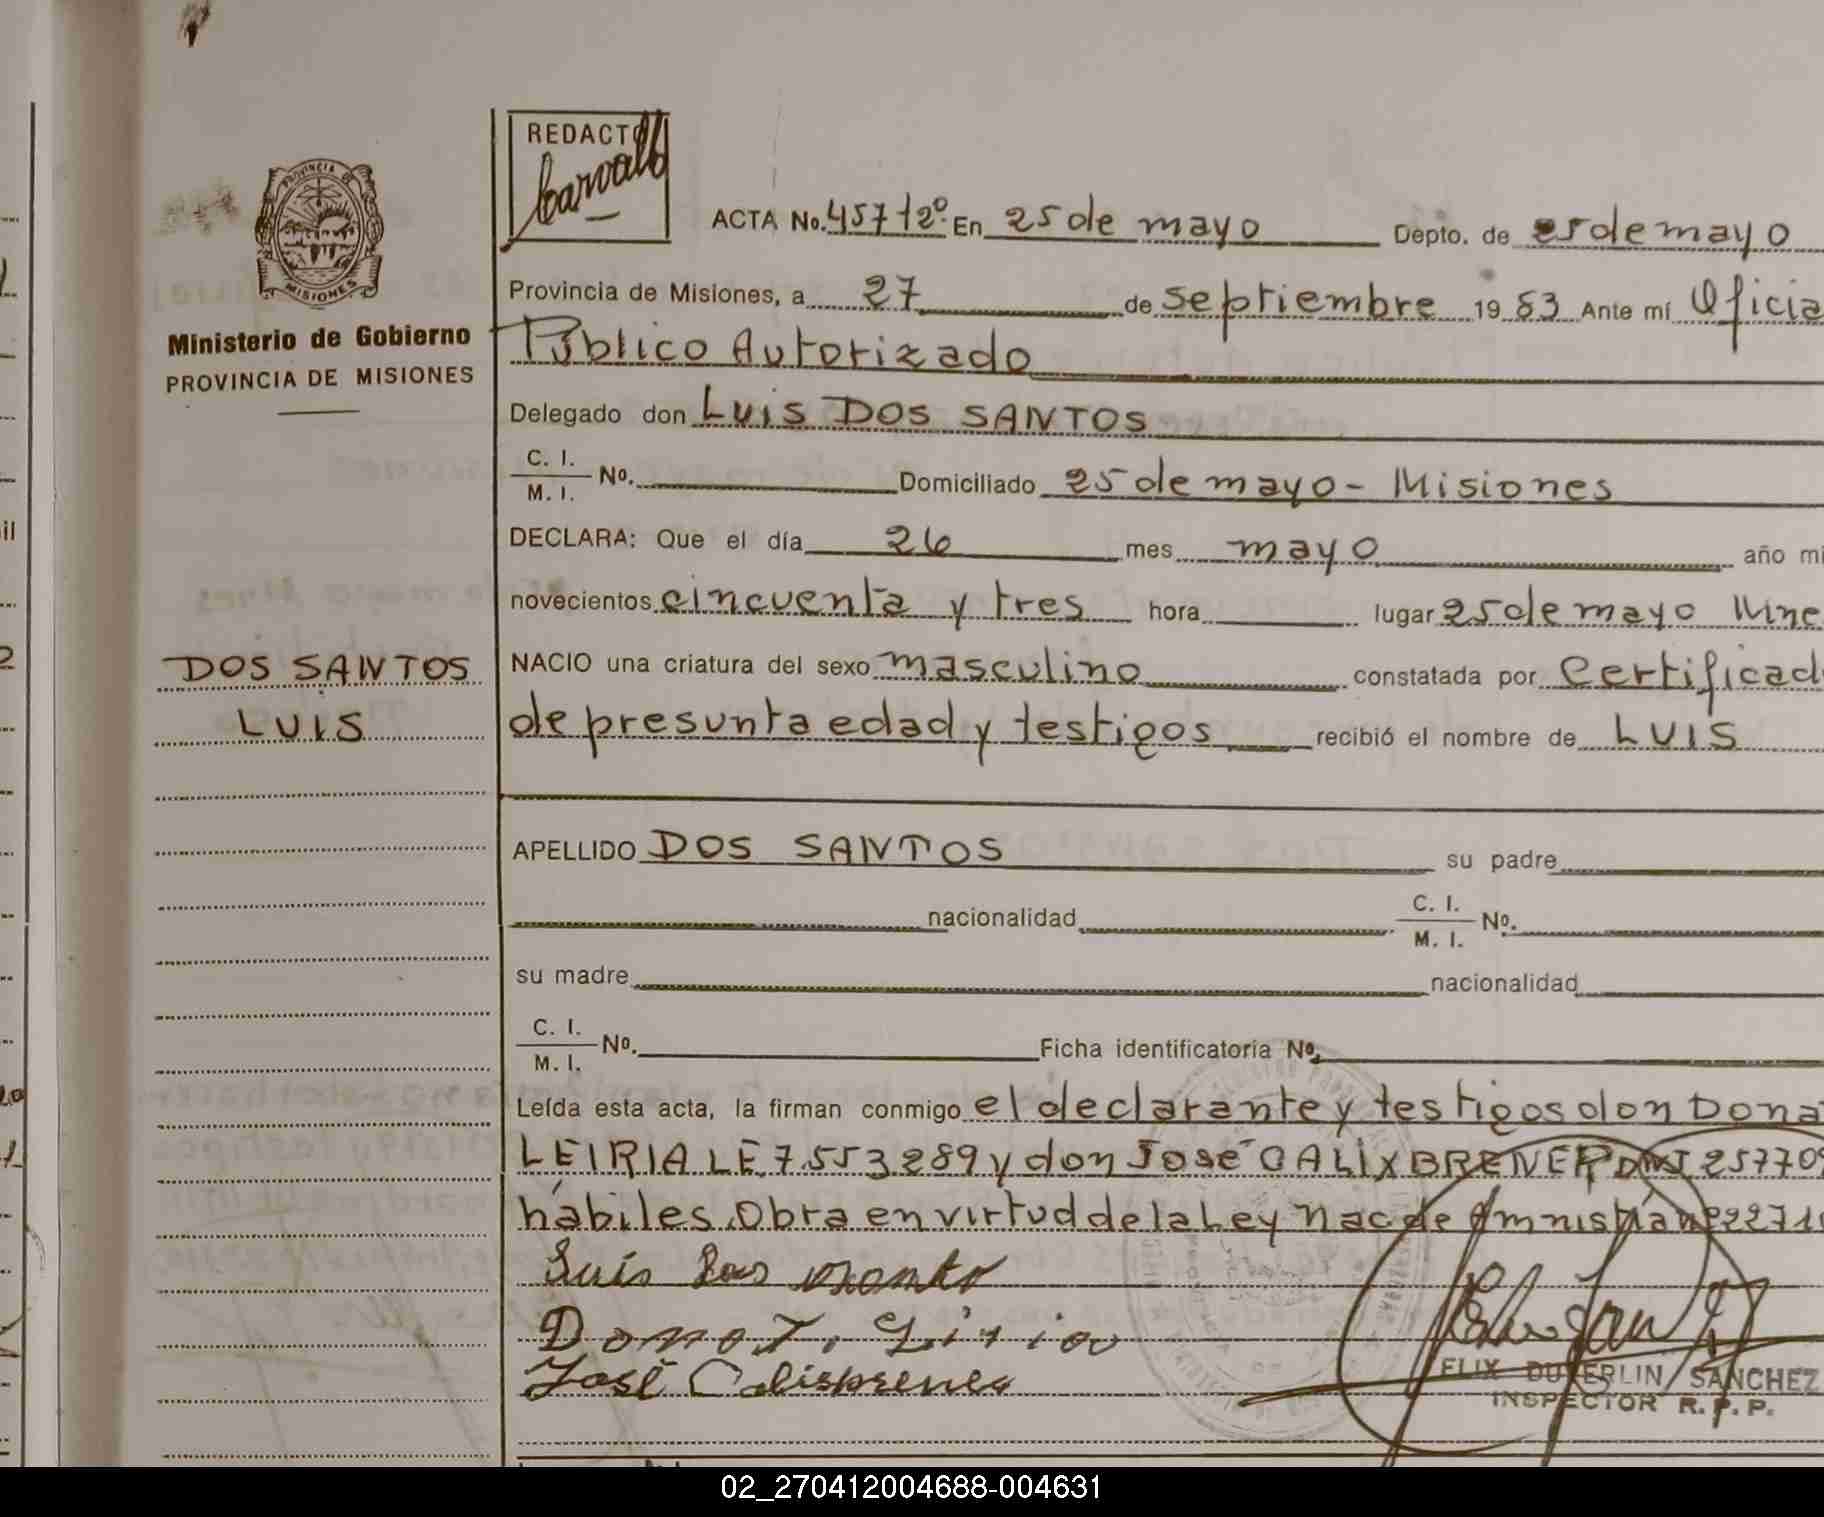 REDACTO
Carvallo
PROVINCIA DE
MISIONES
Ministerio de Gobierno
PROVINCIA DE MISIONES
ACTA No. 457 t2º. En 25 de mayo Depto. de 25 de mayo
Provincia de Misiones, a 27 de septiembre 19 83 Ante mí Oficia
Público Autorizado
Delegado don LUIS DOS SANTOS
C. I.
M. I. Nº. Domiciliado 25 de mayo - Misiones
DECLARA: Que el día 26 mes mayo año mi
novecientos cincuenta y tres hora lugar 25 de mayo Mnes
DOS SANTOS
LUIS
NACIO una criatura del sexo masculino constatada por Certificad
de presunta edad y testigos recibió el nombre de LUIS
APELLIDO DOS SANTOS su padre
nacionalidad C. I.
M. I. Nº.
su madre nacionalidad
C. I.
M. I. Nº. Ficha identificatoria Nº.
Leída esta acta, la firman conmigo el declarante y testigos don Dona
LEIRIA LE 7553289 y don José CALIXBRENER DNI 257709
hábiles. Obra en virtud de la Ley Nac de Amnistía nº 2271
Luis Dos
José
FELIX DUVERLIN SANCHEZ
INSPECTOR R. P. P.
02_270412004688-004631